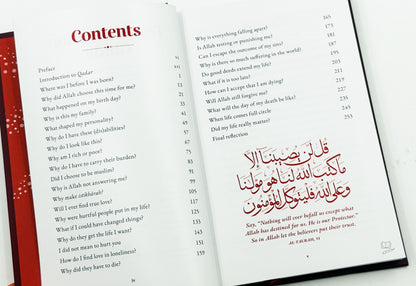 Contents
Preface
Introduction to Qadar
Where was I before I was born?
Why did Allah choose this time for me?
What happened on my birth day?
Why is this my family?
What shaped my personality?
Why do I have these (dis)abilities?
Why do I look like this?
Why am I rich or poor?
Why do I have to carry their burden?
Did I choose to be muslim?
Why is Allah not answering me?
Why make istikhārah?
Will I ever find true love?
Why were hurtful people put in my life?
What if I could have changed things?
Why do they get the life I want?
I did not mean to hurt you
How do I find love in loneliness?
Why did they have to die?
Why is everything falling apart? 165
Is Allah testing or punishing me? 173
Can I escape the outcome of my sins? 181
Why is there so much suffering in the world? 187
Do good deeds extend my life? 195
What if it was too late? 203
How can I accept that I am dying? 211
Will Allah still forgive me? 219
What will the day of my death be like? 221
When life comes full circle 227
Did my life really matter? 245
Final reflection 253
قُل لَّن يُصِيبَنَا إِلَّا
مَا كَتَبَ اللَّهُ لَنَا هُوَ مَوْلَانَا
وَعَلَى اللَّهِ فَلْيَتَوَكَّلِ الْمُؤْمِنُونَ
Say, "Nothing will ever befall us except what
Allah has destined for us. He is our Protector."
So in Allah let the believers put their trust.
AL-TAWBAH, 51
iv
v